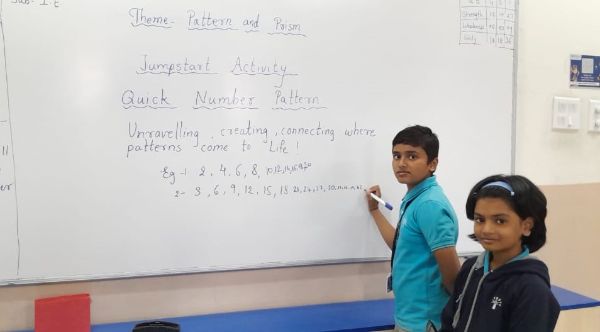 Sub:- I.E
Theme- Pattern and Prism
Jumpstart Activity
Quick Number Pattern
Unravelling, creating, connecting where
patterns come to Life!
Eg -1 2, 4, 6, 8, 10, 12, 14,
2- 3, 6, 9, 12, 15, 18
ll
er
Strength
Girls